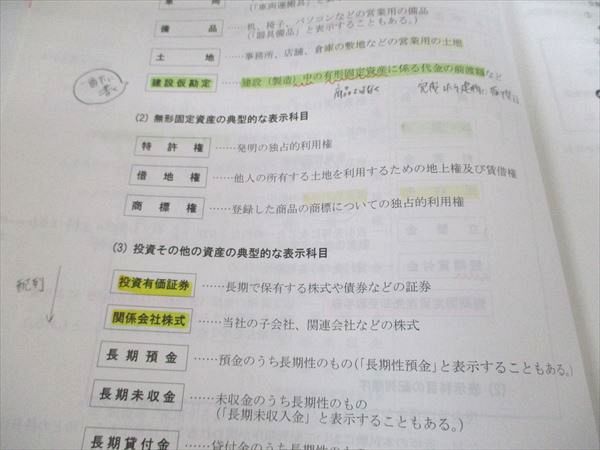 (「車両運搬具」と表示することもある。)
備品 ……机、椅子、パソコンなどの営業用の備品
(「器具備品」と表示することもある。)
土地 ……事務所、店舗、倉庫の敷地などの営業用の土地
建設仮勘定 ……建設(製造)中の有形固定資産に係る代金の前渡額など
(2) 無形固定資産の典型的な表示科目
特許権 ……発明の独占的利用権
借地権 ……他人の所有する土地を利用するための地上権及び賃借権
商標権 ……登録した商品の商標についての独占的利用権
(3) 投資その他の資産の典型的な表示科目
配列
投資有価証券 ……長期で保有する株式や債券などの証券
関係会社株式 ……当社の子会社、関連会社などの株式
長期預金 ……預金のうち長期性のもの(「長期性預金」と表示することもある。)
長期未収金 ……未収金のうち長期性のもの
(「長期未収入金」と表示することもある。)
長期貸付金 ……貸付金のうち長期性のもの